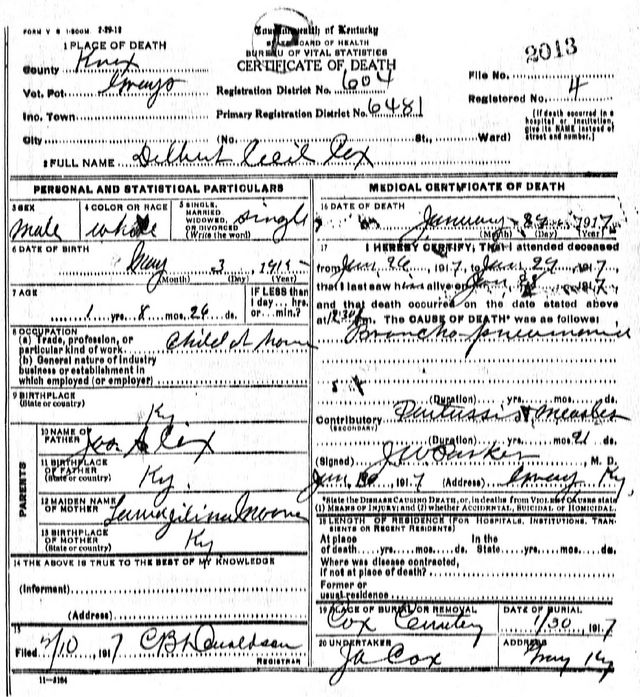 FORM V S 1-500M 7-29-12
Commonwealth of Kentucky
STATE BOARD OF HEALTH
BUREAU OF VITAL STATISTICS
CERTIFICATE OF DEATH
2013
1 PLACE OF DEATH
County Knox
Vot. Pct Grays
Inc. Town
City
Registration District No. 604
Primary Registration District No. 6481
(No. St., Ward)
File No.
Registered No. 4
[If death occurred in a hospital or institution, give its NAME instead of street and number.]
2 FULL NAME Delbert Cecil Cox
PERSONAL AND STATISTICAL PARTICULARS
3 SEX
male
4 COLOR OR RACE
white
5 SINGLE, MARRIED WIDOWED, OR DIVORCED (Write the word)
single
6 DATE OF BIRTH
3 191
(Month) (Day) (Year)
7 AGE
1 yrs. 8 mos. 26 ds.
IF LESS than 1 day... hrs. or... min.?
8 OCCUPATION
(a) Trade, profession, or particular kind of work child at home
(b) General nature of industry business or establishment in which employed (or employer)
9 BIRTHPLACE
(State or country)
Ky
PARENTS
10 NAME OF FATHER Cox
11 BIRTHPLACE OF FATHER
(State or country) Ky.
12 MAIDEN NAME OF MOTHER Moore
13 BIRTHPLACE OF MOTHER
(State or country) Ky
14 THE ABOVE IS TRUE TO THE BEST OF MY KNOWLEDGE
(Informant)
(Address)
15
Filed 2/10, 1917 CB Donaldson
REGISTRAR
11-3184
MEDICAL CERTIFICATE OF DEATH
16 DATE OF DEATH
January 29 1917
(Month) (Day) (Year)
17 I HEREBY CERTIFY, That I attended deceased
from Jan 26, 1917, to Jan 29, 1917
that I last saw him alive on Jan, 1917
and that death occurred on the date stated above
at 12:30 m. The CAUSE OF DEATH* was as follows:
Broncho pneumonia
(Duration) yrs. mos. ds.
Contributory Pertussis & Measles
(SECONDARY)
(Duration) yrs. mos. 21 ds.
(Signed) J W Parker, M. D.
Jan 30 1917 (Address) Gray Ky.
*State the DISEASE CAUSING DEATH, or, in deaths from VIOLENT CAUSES state (1) MEANS OF INJURY; and (2) whether ACCIDENTAL, SUICIDAL or HOMICIDAL.
18 LENGTH OF RESIDENCE (FOR HOSPITALS, INSTITUTIONS, TRANSIENTS OR RECENT RESIDENTS)
At place of death yrs. mos. ds. In the State yrs. mos. ds.
Where was disease contracted, if not at place of death?
Former or usual residence
19 PLACE OF BURIAL OR REMOVAL
Cox Cemetery
DATE OF BURIAL
1/30, 1917
20 UNDERTAKER
JA Cox
ADDRESS
Gray Ky